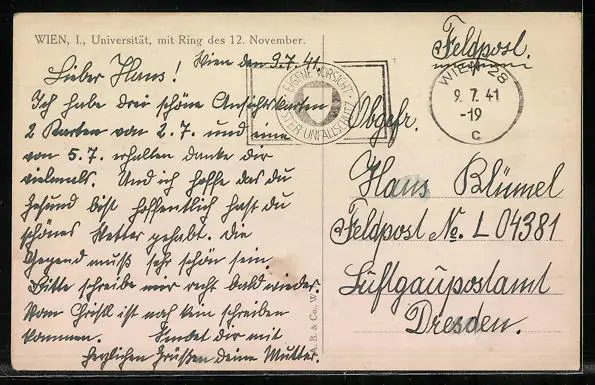 WIEN, I., Universität, mit Ring des 12. November.
Wien den 9.7.41.
Lieber Hans!
Ich habe drei schöne Ansichtskarten
2 Karten vom 2.7. und eine
von 5.7. erhalten danke dir
vielmals. Und ich hoffe das du
Gesund bist hoffentlich hast du
schönes Wetter gehabt. Die
Gegend muß sehr schön sein.
Bitte schreibe mir recht bald wieder.
Vom Christl ist noch kein schreiben
kommen. Sendet dir mit
herzlichen Grüßen deine Mutter.
EIGENE VORSICHT
BESTER UNFALLSCHUTZ
A. B. & Co., W.
Feldpost.
WIEN 28
9. 7. 41
-19
c
Obgefr.
Hans Blümel
Feldpost No. L 04381
Luftgaupostamt
Dresden.